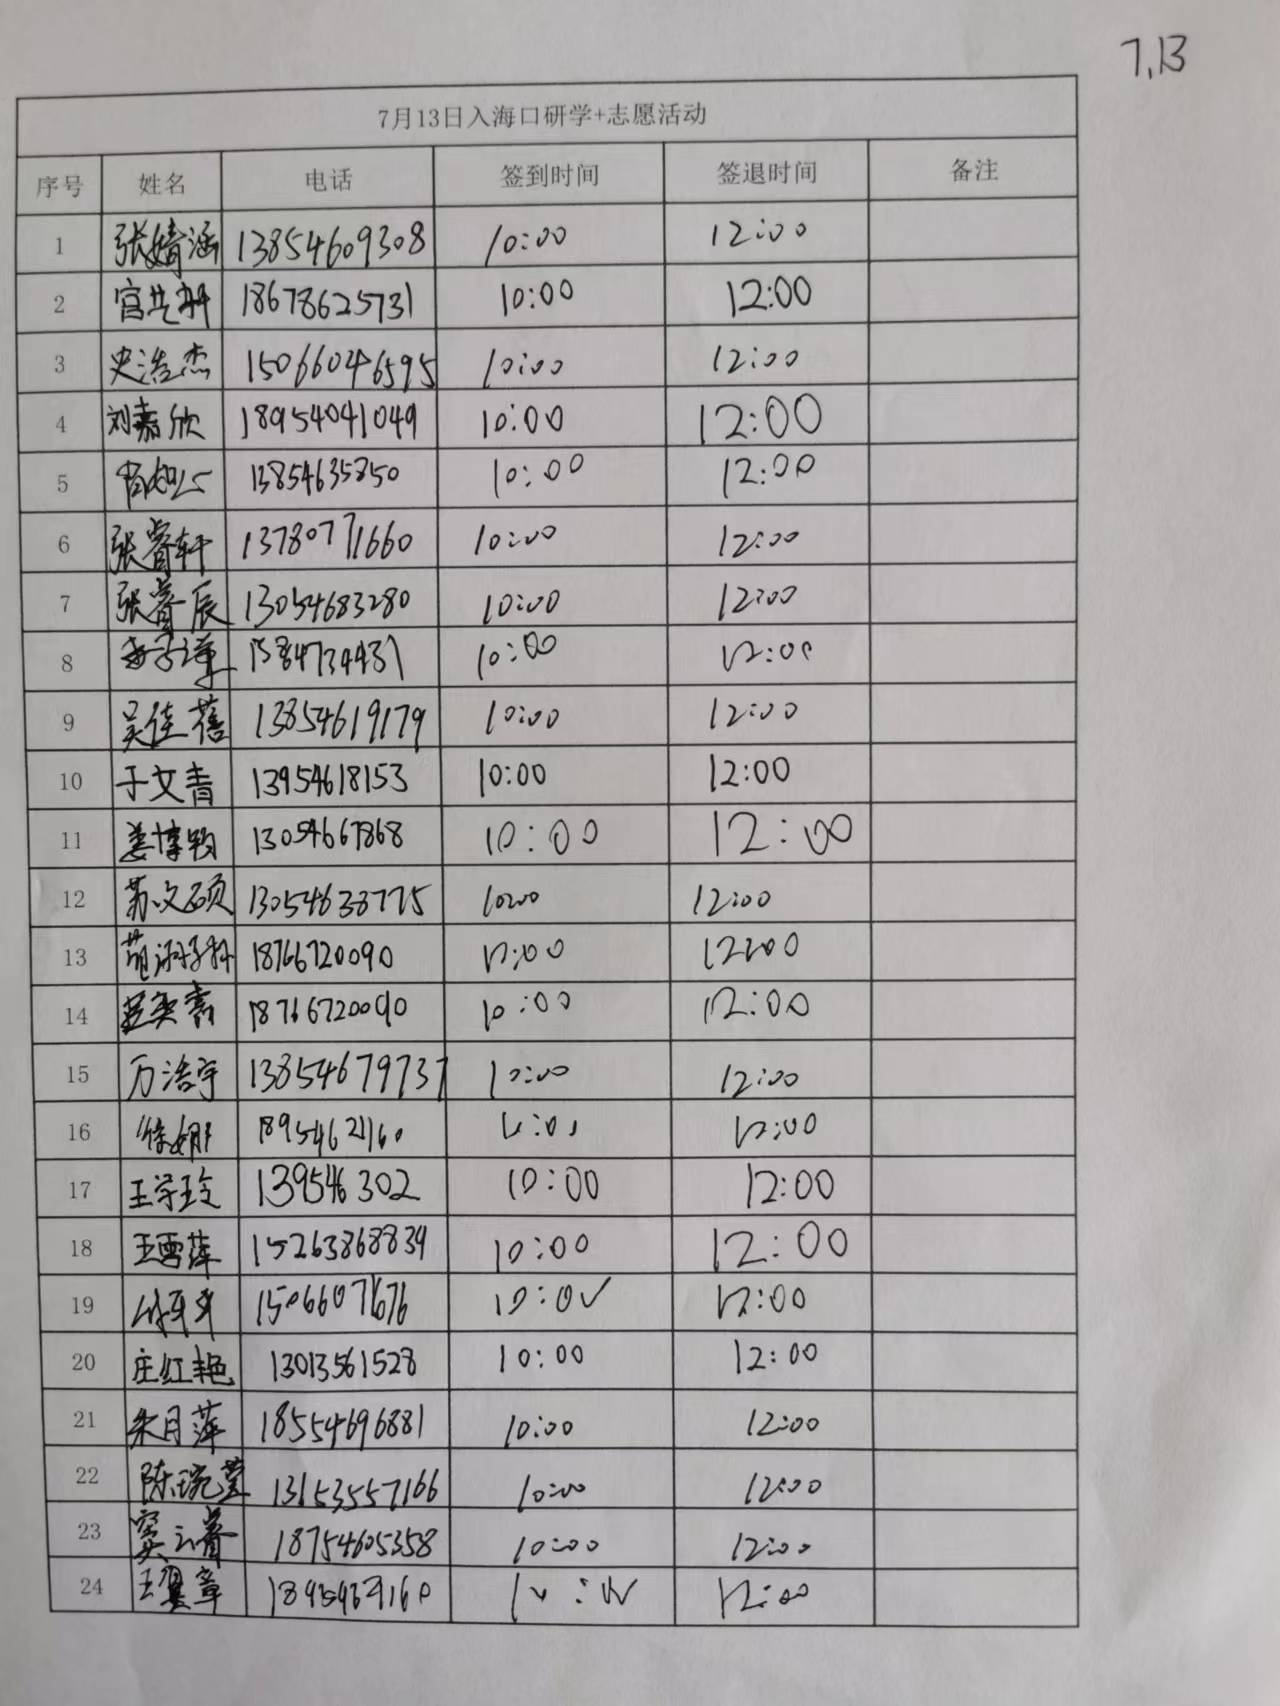 7,13
7月13日入海口研学+志愿活动
序号 姓名 电话 签到时间 签退时间 备注
1 张婧涵 13854609308 10:00 12:00
2 18678625731 10:00 12:00
3 史浩杰 15066046595 10:00 12:00
4 刘嘉欣 18954041049 10:00 12:00
5 13854635850 10:00 12:00
6 张睿轩 13780771660 10:00 12:00
7 张睿辰 13054683280 10:00 12:00
8 1584734431 10:00 12:00
9 吴佳蓓 13854619179 10:00 12:00
10 于文青 13954618153 10:00 12:00
11 姜博钧 13054667868 10:00 12:00
12 苏文硕 13054638775 10:00 12:00
13 18766720090 10:00 12:00
14 18766720090 10:00 12:00
15 万浩宇 13854679737 10:00 12:00
16 徐娜 18954621160 12:00
17 王学玲 139546302 10:00 12:00
18 王雪萍 15263868839 10:00 12:00
19 15066071676 10:00 12:00
20 庄红艳 13013561528 10:00 12:00
21 朱月萍 18554696881 10:00 12:00
22 陈琬莹 13153557166 10:00 12:00
23 窦云睿 18754605358 10:00 12:00
24 王翼章 10:00 12:00